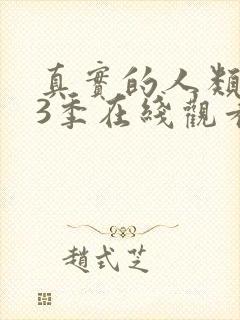 真實的人類
3季在綫觀
趙式芝